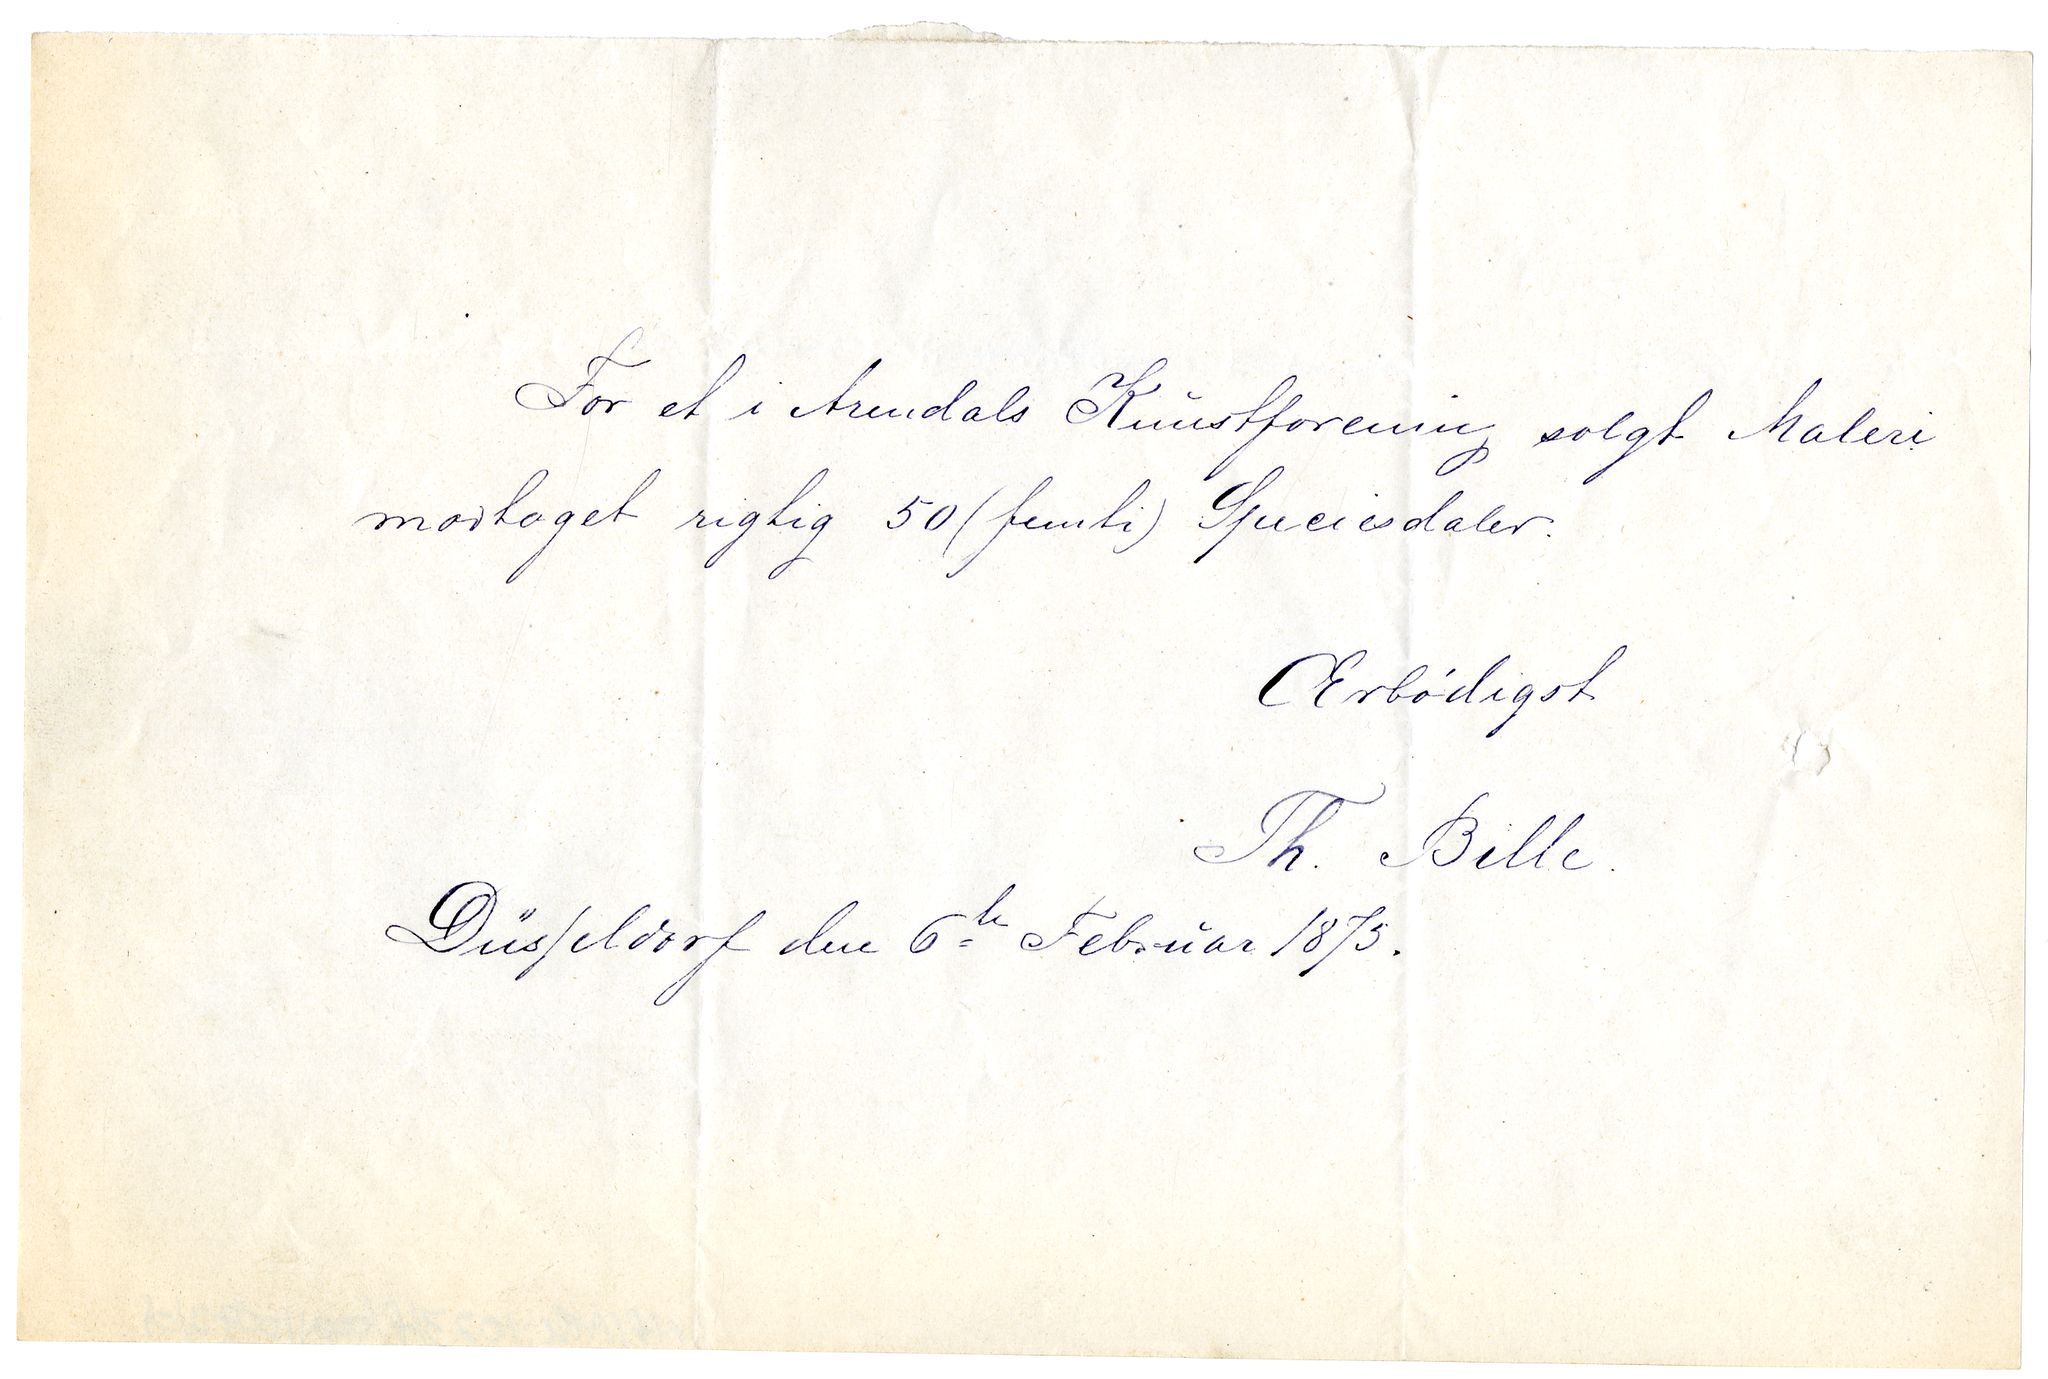 For et i Arendals Kunstforening solgt Maleri
modtaget rigtig 50 (femti) Speciesdaler.
Ærbödigst
Th. Bille.
Düsseldorf den 6te Februar 1875.